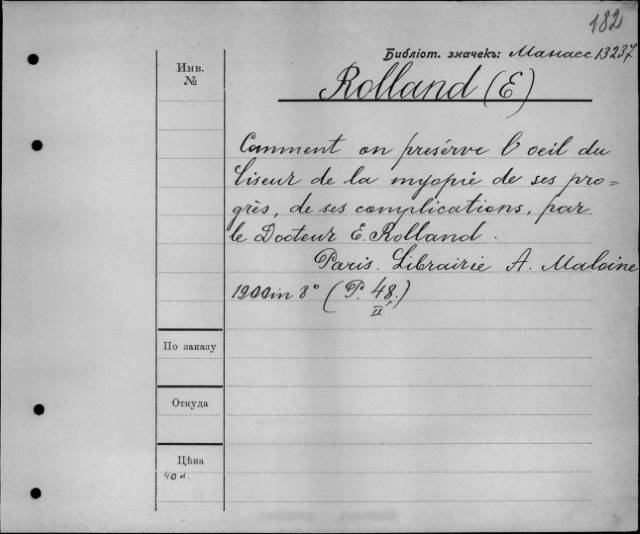 182
Библіот. значекъ: Манасс 13237
Инв.
№
Rolland (E)
Comment on presérve l'oeil du
liseur de la myopie de ses pro=
grès, de ses complications, par
le Docteur E. Rolland.
Paris. Librairie A. Maloine
1900 in 8° (P. 48.)
II
По заказу
Откуда
Цѣна